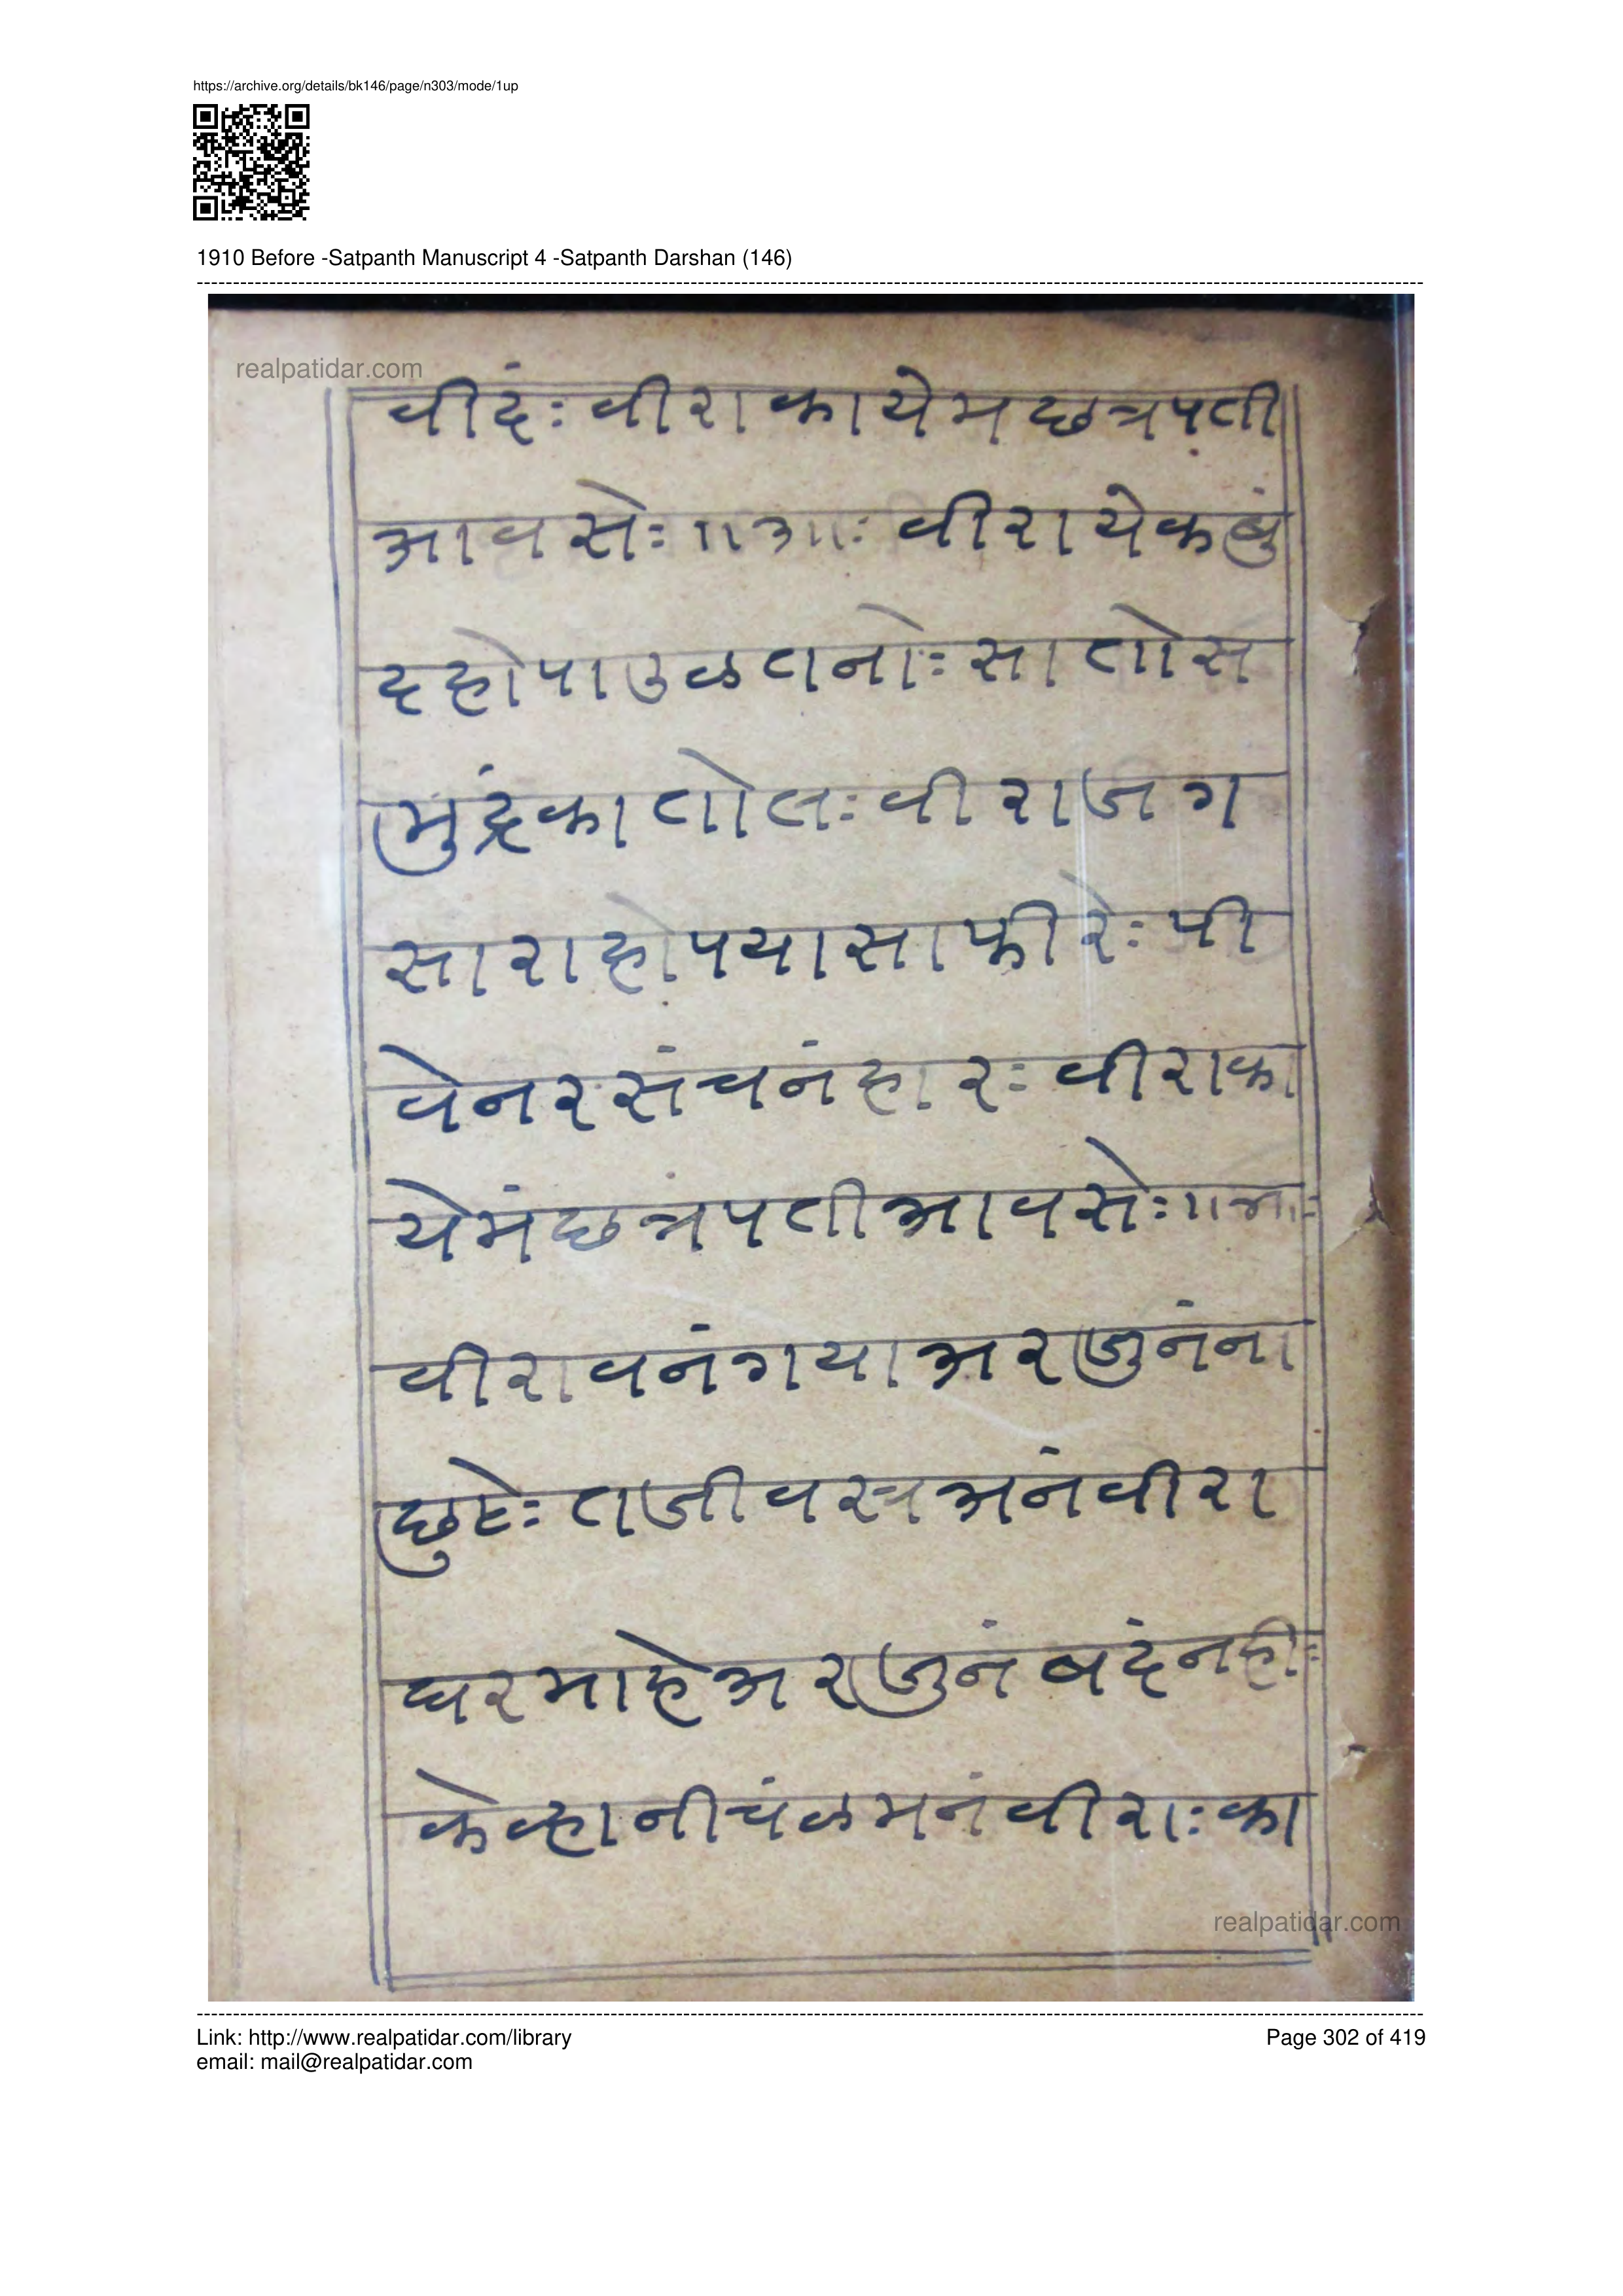 https://archive.org/details/bk146/page/n303/mode/1up
1910 Before -Satpanth Manuscript 4 -Satpanth Darshan (146)
realpatidar.com
वींदं: वीरा कायेम छत्रपती
आवसे: ॥आ: वीरा येक बुं
द हो पाउळतानो: सातो स
मुंद्रं का तोल: वीरा जग
सारा हो पयासा फीरे: पी
वे नर संचनं हार: वीरा का
येमं छत्रंपती आवसे: ॥आ:
वीरा वनं गया अरजुनं ना
छुटे: ताजी वस्त्र अनं वीरा
घर माहे अरजुनं बदं नही:
केव्हा नीचंळ मनं वीरा: का
realpatidar.com
Link: http://www.realpatidar.com/library
email: mail@realpatidar.com
Page 302 of 419